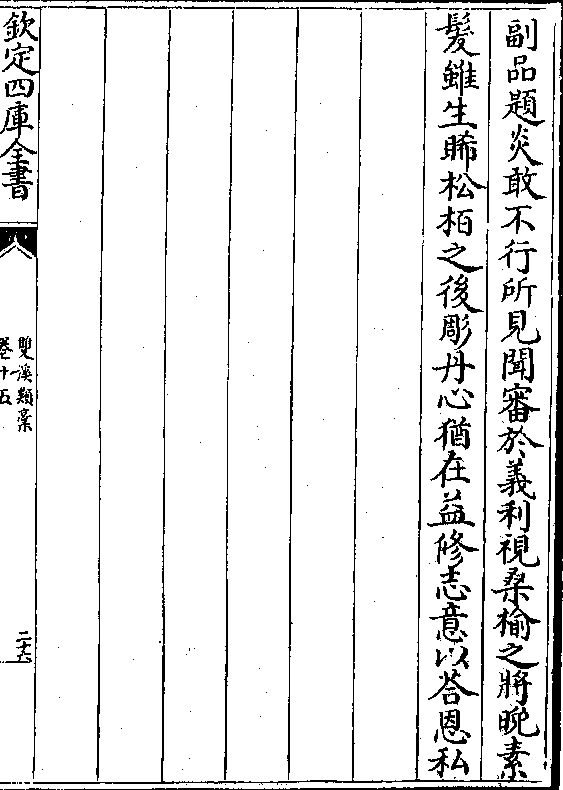 副品題炎敢不行所見聞審於義利視桑榆之將晩素
髮雖生睎松栢之後彫丹心猶在益修志意以荅恩私
欽定四庫全書
雙溪類藁
卷十五
二十六